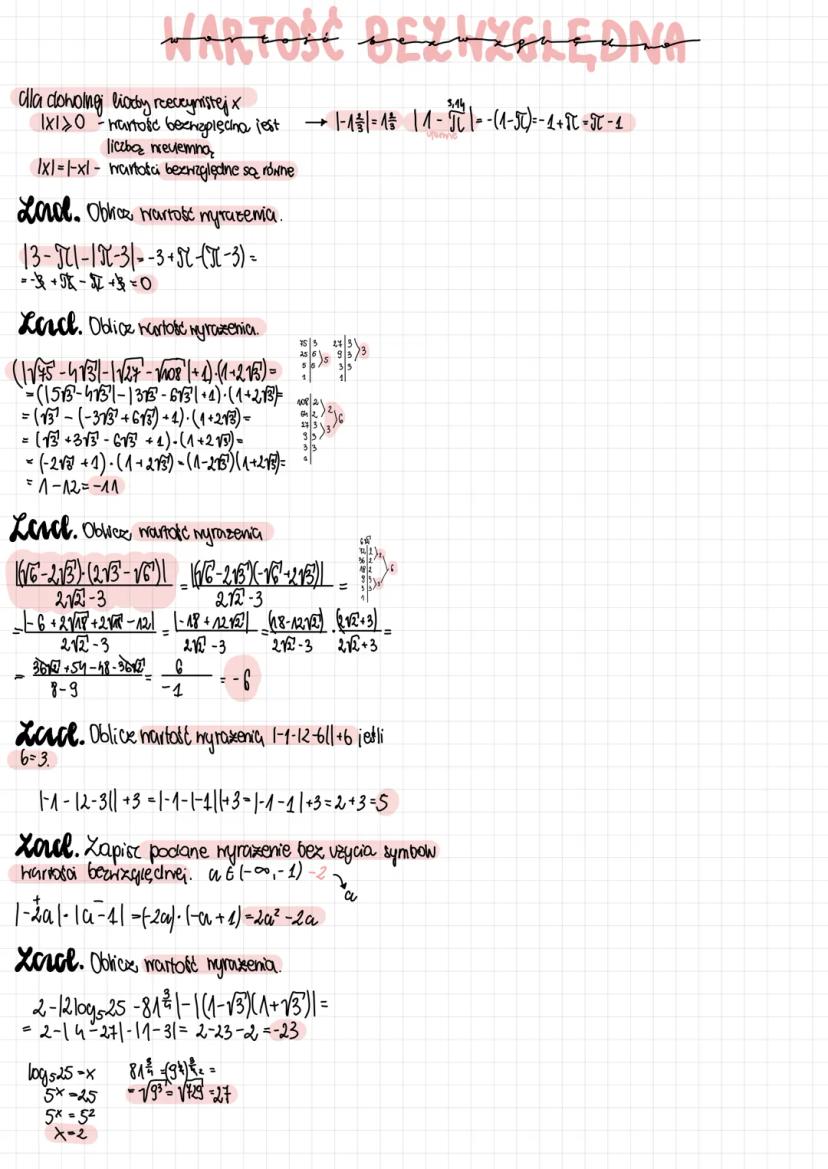 WARTOŚĆ BEZWZGLĘDNA
wartość bezwzględna
dla dowolnej liczby rzeczywistej x
|x| ⩾ 0 - wartość bezwzględna jest liczbą nieujemną
|x| = |-x| - wartości bezwzględne są równe
→ |-1⅔| = 1⅔
3,14
|1 - π| = -(1-π) = -1+π = π-1
ujemne
Zad. Oblicz wartość wyrażenia.
|3-π|-|π-3| = -3+π-(π-3) =
= -3+π-π+3 = 0
Zad. Oblicz wartość wyrażenia.
(|√75 - 4√3|-|√27 - √108|+1)·(1+2√3) =
= (|5√3-4√3|-|3√3-6√3|+1)·(1+2√3) =
= (√3 - (-3√3+6√3)+1)·(1+2√3) =
= (√3+3√3-6√3+1)·(1+2√3) =
= (-2√3+1)·(1+2√3) = (1-2√3)(1+2√3) =
= 1-12 = -11
75|3 27|3
25|5 9|3 3
5|5 5 3|3
1| 1|
108|2
54|2 2
27|3 6
9|3 3
3|3
1|
Zad. Oblicz wartość wyrażenia
|(√6-2√3)·(2√3-√6)| / 2√2-3 = |(√6-2√3)(-√6+2√3)| / 2√2-3 =
= |-6+2√18+2√18-12| / 2√2-3 = |-18+12√2| / 2√2-3 = (18-12√2) / 2√2-3 · (2√2+3) / 2√2+3 =
= 36√2+54-48-36√2 / 8-9 = 6 / -1 = -6
72|2
36|2
18|2
9|3
3|3
1|
6
Zad. Oblicz wartość wyrażenia |-1-|2-b||+b jeśli
b=3.
|-1-|2-3||+3 = |-1-|-1||+3 = |-1-1|+3 = 2+3 = 5
Zad. Zapisz podane wyrażenie bez użycia symbolu
wartości bezwzględnej. a∈(-∞,-1) -2
a
+ -
|-2a|·|a-1| = (-2a)·(-a+1) = 2a²-2a
Zad. Oblicz wartość wyrażenia.
2-|2log₅25 - 81^¾|-|(1-√3)(1+√3)| =
= 2-|4-27|-|1-3| = 2-23-2 = -23
log₅25 = x
5ˣ = 25
5ˣ = 5²
x = 2
81^¾ = (9²)^¾ =
= √9³ = √729 = 27